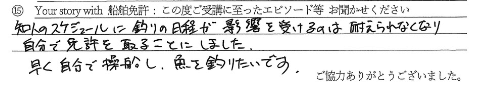 ⑮ Your story with 船舶免許：この度ご受講に至ったエピソード等 お聞かせください
知人のスケジュールに 釣りの日程が 影響を受けるのは 耐えられなくなり
自分で免許を取ることにしました。
早く自分で操船し、魚を釣りたいです。
ご協力ありがとうございました。